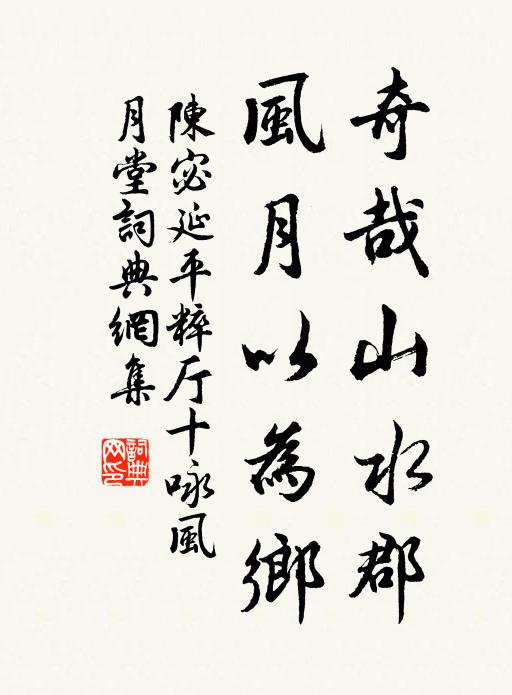 奇哉山水郡
風月以為鄉
陳宓延平粹厅十咏風
月堂詞典網集
詞典網印